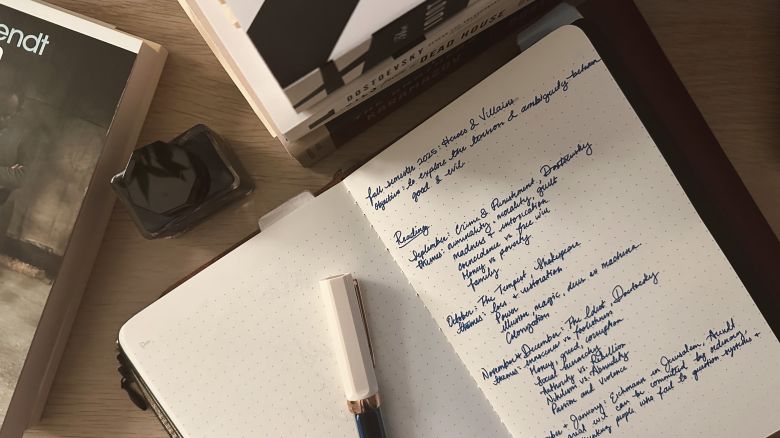 endt
DOSTOEVSKY
DEAD HOUSE
KARAMAZOV
Fall semester 2025: Heroes & Villains
Objective: to explore the tension & ambiguity between
good & evil
Reading
September: Crime & Punishment, Dostoevsky
themes: criminality, morality, guilt
madness & intoxication
coincidence vs free will
Money vs poverty
Family
October: The Tempest, Shakespeare
themes: loss & restoration
Power, magic, deus ex machina
illusion
Colonization
November & December: The Idiot, Dostoevsky
themes: innocence vs foolishness
Money, greed, corruption
Social hierarchy
Authority vs. Rebellion
Nihilism vs. Absurdity
Passion and Violence
& January: Eichmann in Jerusalem, Arendt
evil can be committed by ordinary,
people who fail to question systems &